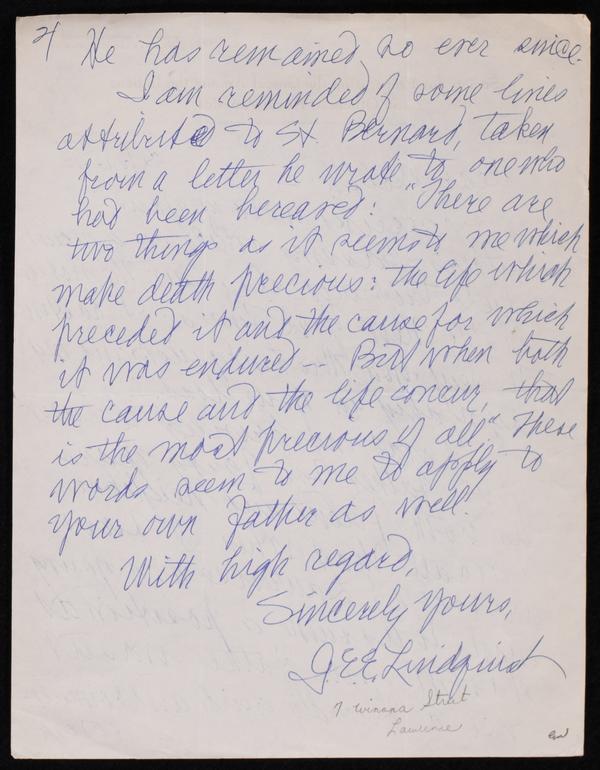 2/ He has remained so ever since.
I am reminded of some lines
attributed to St Bernard, taken
from a letter he wrote to one who
had been bereaved: "There are
two things as it seems to me which
make death precious: the life which
preceded it and the cause for which
it was endured -- But when both
the cause and the life concur, that
is the most precious of all." These
words seem to me to apply to
your own father as well.
With high regard,
Sincerely yours,
G.E.E. Lindquist
7 Winona Street
Lawrence